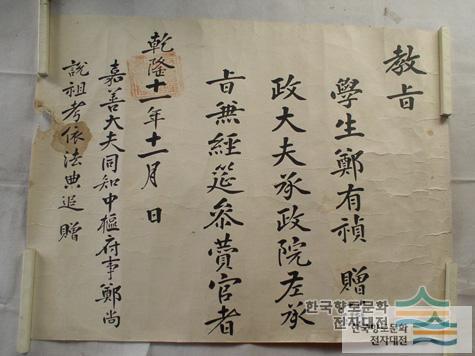 教旨
學生鄭有禎 贈
政大夫承政院左承
旨兼經筵叅贊官者
乾隆十一年十一月 日
嘉善大夫同知中樞府事鄭尚
說祖考依法典追贈
한국향토문화
전자대전
한국향토문화
전자대전